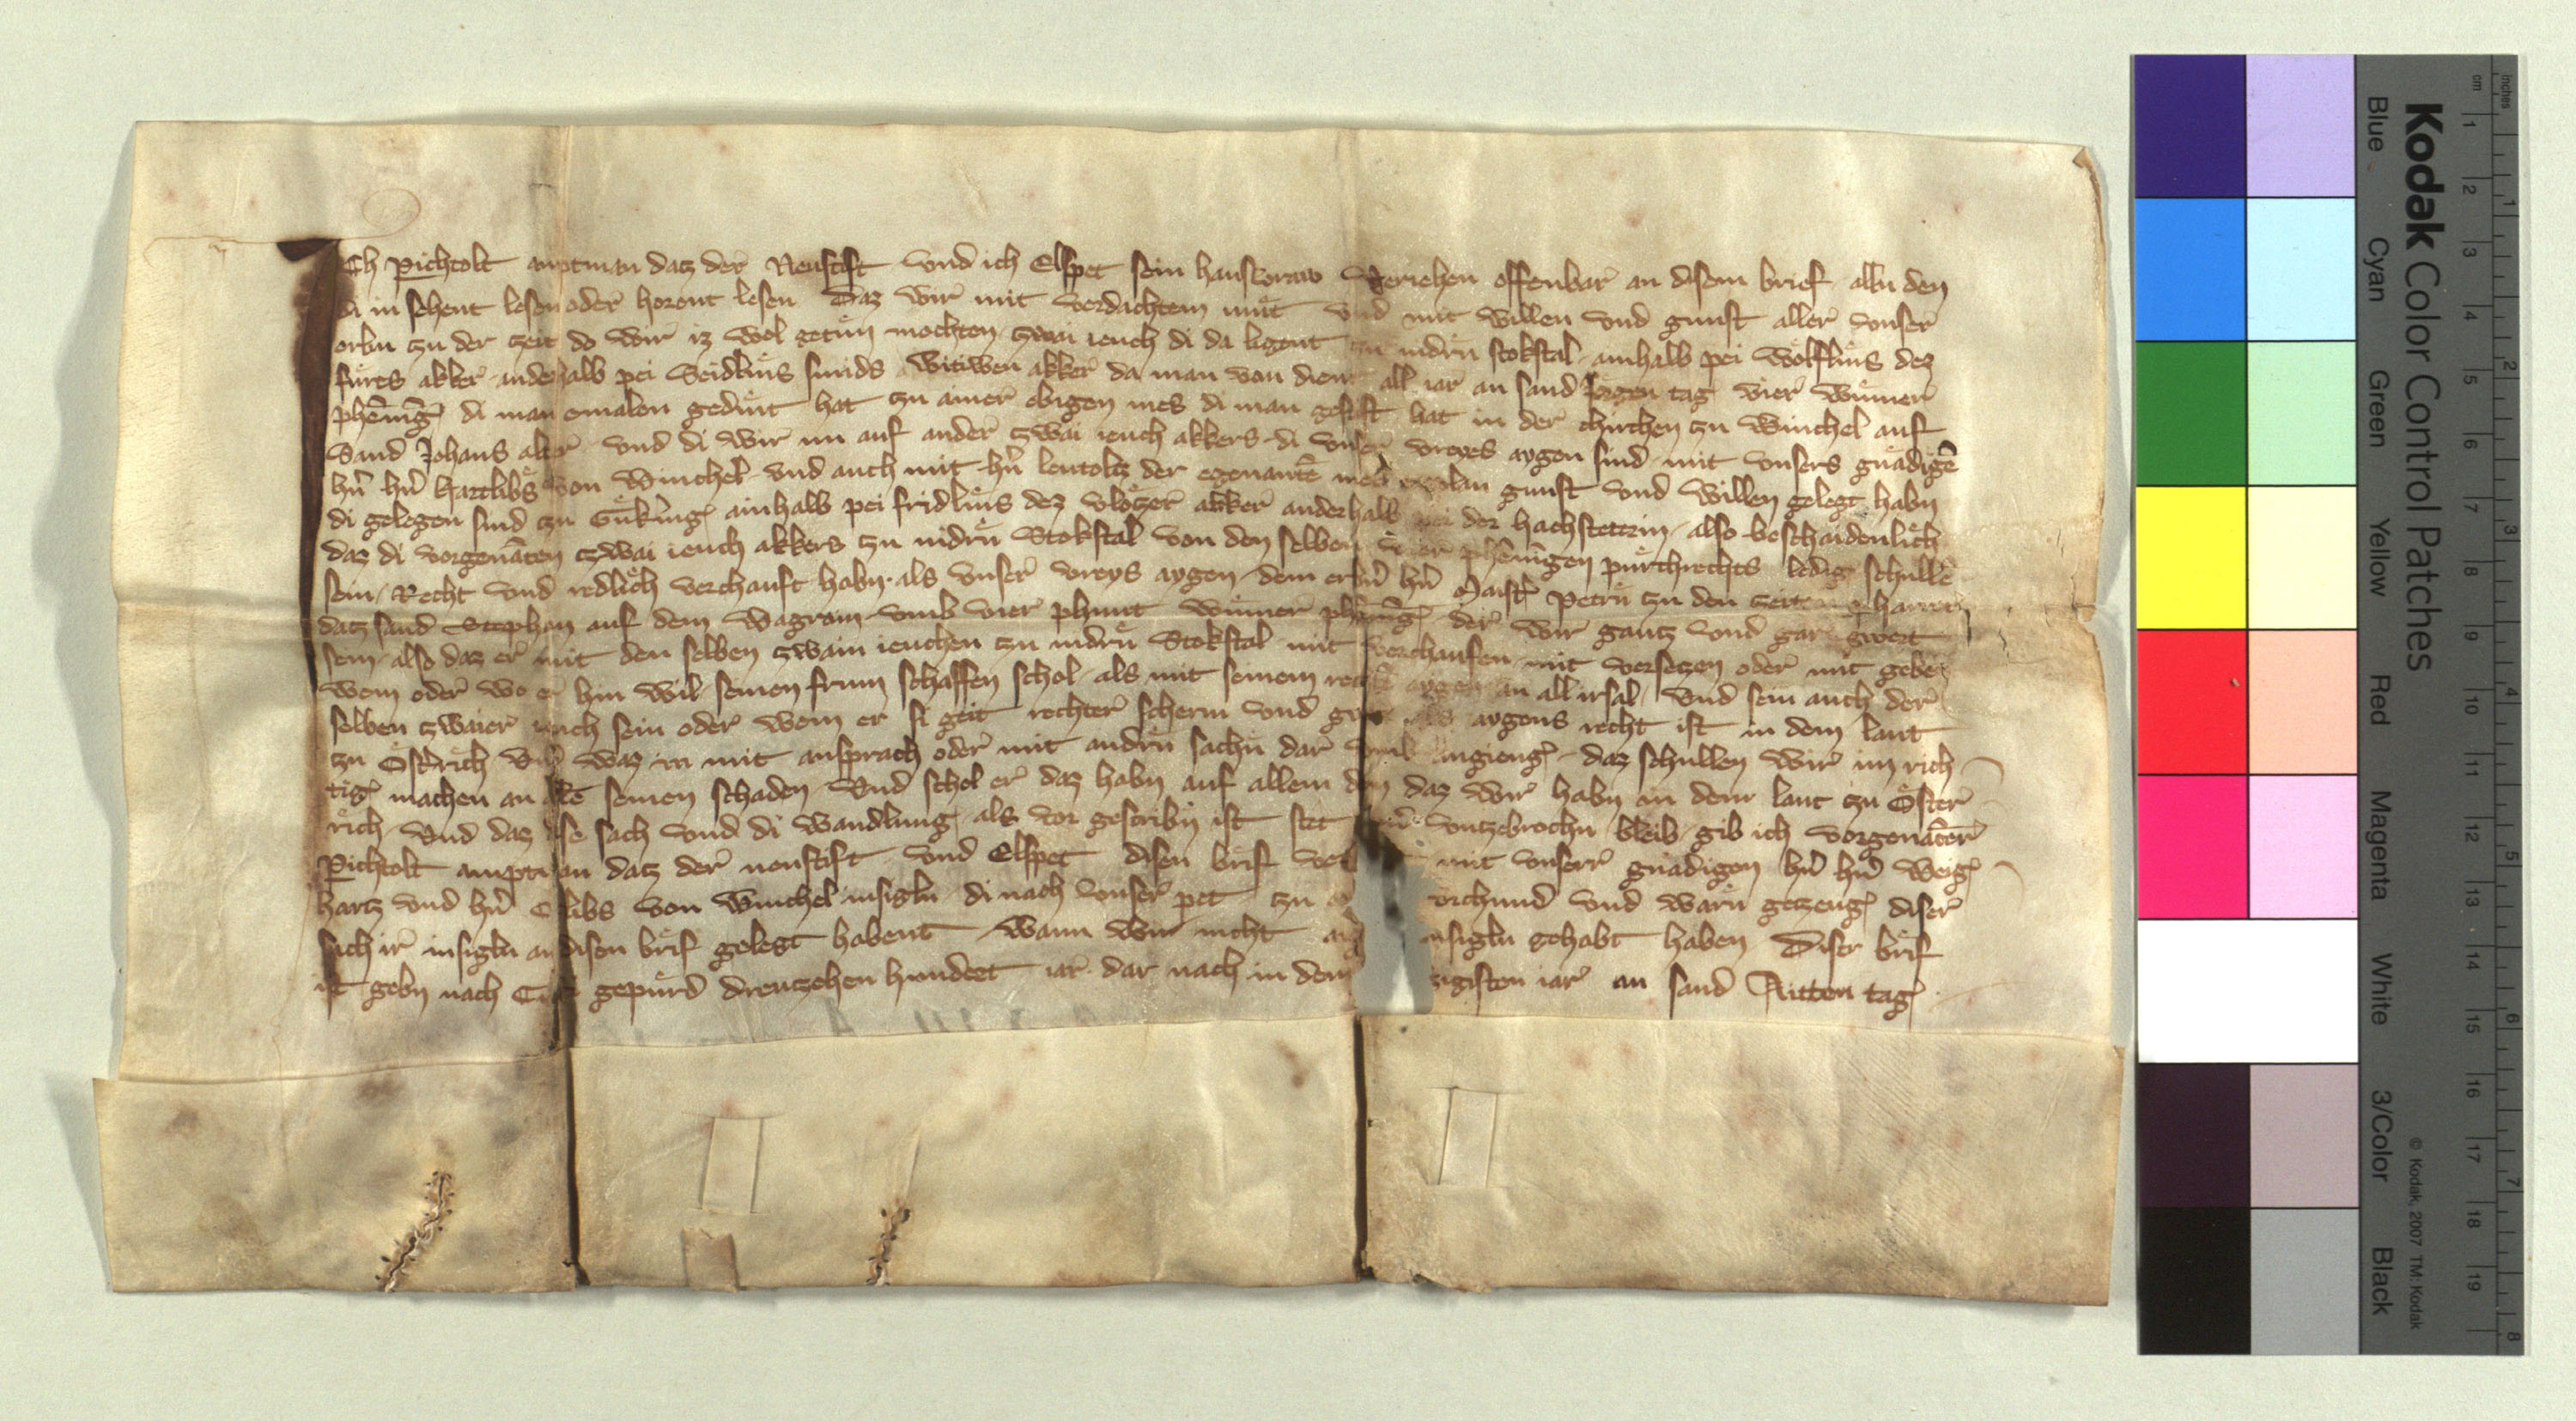 Ich Pichtolt amptman datz der Neustift vnd ich Elspet sein hausvraw veriehen offenbar an disem brief alln den
di in sehent lesen oder horent lesen Daz wir mit verdachtem muͤt vnd mit willen vnd gunst aller vnser
erbn zu der zeit do wir iz wol getuͤn mochten zwai ieuch di da ligent zu nidrn stokstal ainhalb pei Wolfleins dez
akker anderhalb pei Seidleins smids witiwen akker da man von dient all iar an sand Jorgen tag vier wienner
phēning di man emalen gedint hat zu ainer ebigen mes di man gestift hat in der chirchen zu Winchel auf
Sand Johans alter vnd di wir nu auf ander zwai ieuch akkers di vnser vreyes aygen sind mit vnsers gnadigē
hn̄ hn̄ hartlibs von Winchel vnd auch mit hn̄ leutoltz der egenantē mes gunst vnd willen gelegt habn
di gelegen sind zu ainhalb pei fridleins dez akker anderhalb pei der hachstetterin also beschaidenlich
daz di vorgenāten zwai ieuch akkers zu nidrn Stokstal von den selben vier phēningen purchrechts ledig schullē
sein Recht vnd redlich verchauft habn als vnser vreys aygen dem erbn̄ hn̄ Maister Petrn zu den zeiten pharrer
datz sand Stephan auf dem Wagram vmb vier phunt wienner phēning der wir gantz vnd gar gwert
sein also daz er mit den selben zwain ieuchen zu nidrn Stokstal mit verchaufen mit versetzen oder mit gebē
wem oder wo er hin wil seinen frum schaffen schol als mit seinem aygen an all irsal Vnd sein auch der
selben zwaier ieuch sein oder wem er si geit rechter scherm vnd als aygens recht ist in dem lant
zu Osterich Vn̄ waz im mit ansprach oder mit andrn sachn dar vmb angieng daz schullen wir im rich
tig machen an allē seinen schaden Vnd schol er daz habn auf allem dem daz wir habn in dem lant zu Oster
rich Vnd daz dise sach vnd di wandlung als vor gescribn ist stet vnzebrochn bleib gib ich vorgenāter
Pichtolt amptman datz der neustift vnd Elspet disen brif mit vnserr gnadigen hn̄ hn̄ Weig
hartz vnd hn̄ von Winchel insigln di nach vnser pet zu vrchund vnd warn getzeug diser
sach ir insigln an disen brif gelegt habent Wann wir nicht insigln gehabt haben Diser brif
ist gebn nach gepurd dreutzehen hundert iar dar nach in dem zigisten iar an sand tag
Kodak Color Control Patches
Blue Cyan Green Yellow Red Magenta White 3/Color Black
© Kodak, 2007 TM: Kodak
inches 1 2 3 4 5 6 7 8
cm 1 2 3 4 5 6 7 8 9 10 11 12 13 14 15 16 17 18 19